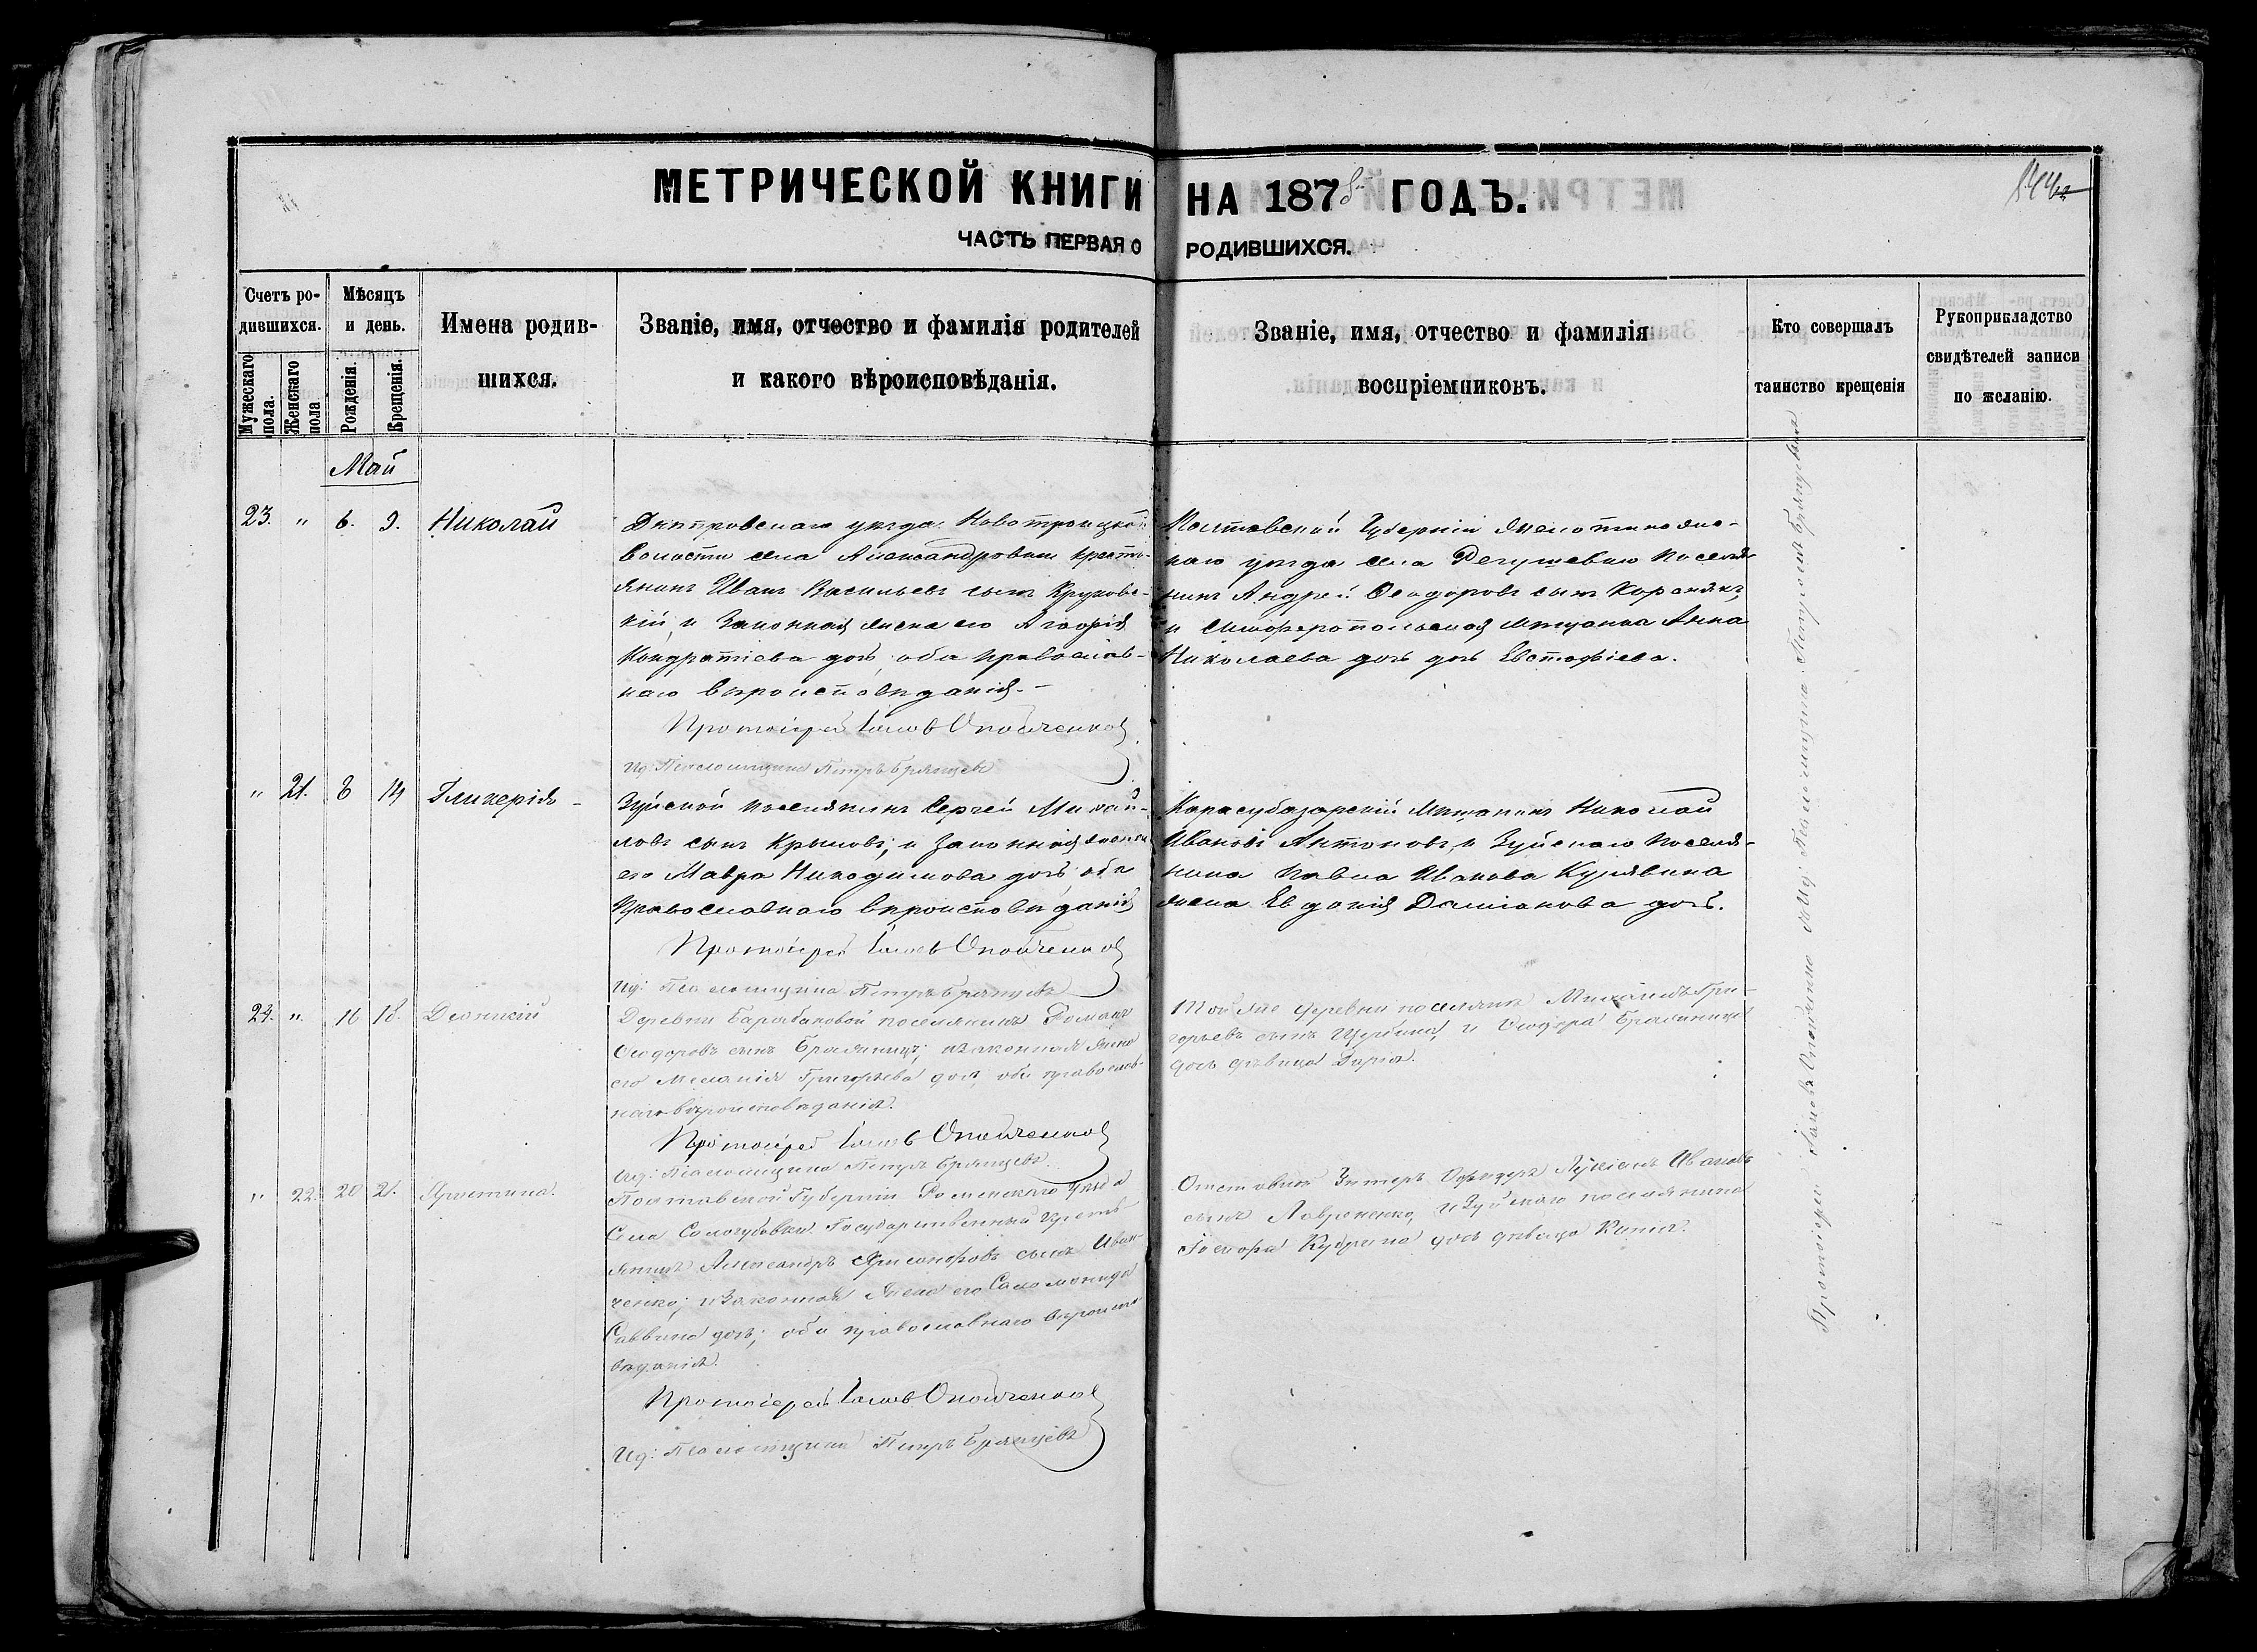 МЕТРИЧЕСКОЙ КНИГИ НА 1878 ГОДЪ.
ЧАСТЬ ПЕРВАЯ О РОДИВШИХСЯ.
Счетъ ро-
дившихся.
Мужескаго пола.
Женскаго пола
Мѣсяцъ
и день.
Рожденія.
Крещенія.
Имена родив-
шихся.
Званіе, имя, отчество и фамилія родителей
и какого вѣроисповѣданія.
Званіе, имя, отчество и фамилія
воспріемниковъ.
Кто совершалъ
таинство крещенія
Рукоприкладство
свидѣтелей записи
по желанію.
Май
23. " 6. 9. Николай
Днѣпровскаго уѣзда Новотроицкой
волости села Александровки кресть-
янинъ Иванъ Васильевъ сынъ Круковс-
кій, и законная жена его
Кондратіева дочь, оба православ-
наго вѣроисповѣданія.-
Протоіерей Іаковъ Опойченковъ
Ид: Псаломщика Петръ Брянцевъ
Полтавской Губерніи
каго уѣзда села поселя-
нинъ Андрей Ѳеодоровъ сынъ
и Симферопольская мѣщанка Анна
Николаева дочь Евстафіева.
" 21. 8 14 Гликерія -
Зуйской поселянинъ Сергей Михай-
ловъ сынъ Крымовъ; и законная жена
его Мавра Никодимова дочь, оба
православнаго вѣроисповѣданія
Протоіерей Іаковъ Опойченковъ
Ид: Псаломщика Петръ Брянцевъ
Карасубазарскій мѣщанинъ Николай
Ивановъ Антоновъ, и Зуйскаго поселя-
нина Павла Иванова Курявина
жена Евдокія Даміанова дочь.
24. " 16 18. Діонисій
Деревни Барабановой поселянинъ Романъ
Ѳеодоровъ сынъ; и законная жена
его Меланія Григорьева дочь, оба православ-
наго вѣроисповѣданія.
Протоіерей Іаковъ Опойченковъ
Ид: Псаломщика Петръ Брянцевъ
Той же деревни поселянинъ Михаилъ Гри-
горьевъ сынъ Щербина, и Ѳеодора
дочь дѣвица Дарья.
" 22. 20 21. Христина.
Полтавской Губерніи Роменскаго уѣзда
села Сологубовки Государственный крестья-
нинъ Александръ сынъ Иван-
ченко; и законная жена его Саломонида
Саввина дочь; оба православнаго вѣроиспо-
вѣданія.
Протоіерей Іаковъ Опойченковъ
Ид: Псаломщика Петръ Брянцевъ
Отставной Унтеръ Офицеръ Лукіанъ Ивановъ
сынъ Лавриненко, и Зуйскаго поселянина
Кудрина дочь дѣвица
Протоіерей Іаковъ Опойченко и Ид: Псаломщика Петръ Брянцевъ